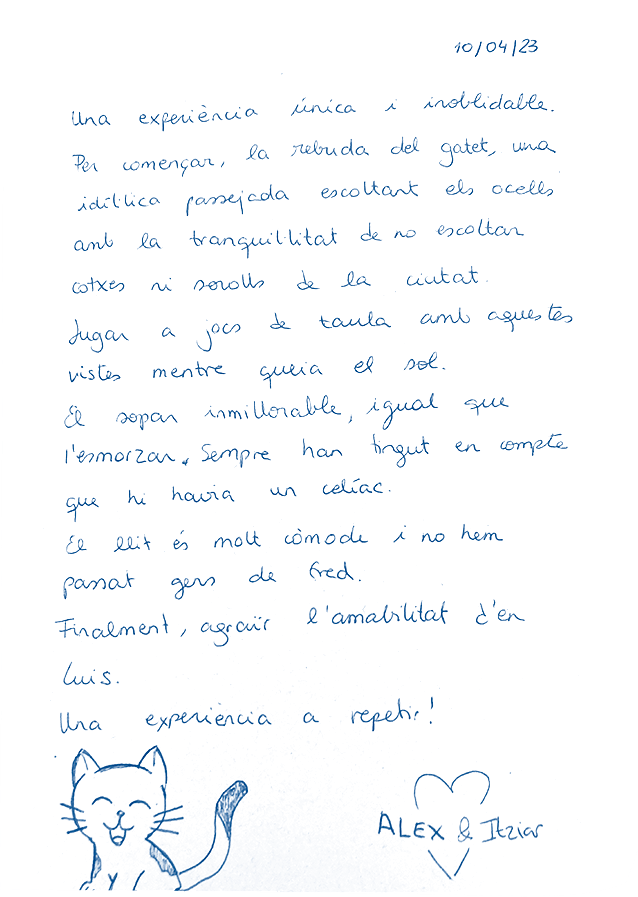 10/04/23
Una experiència única i inoblidable.
Per començar, la rebuda del gatet, una
idíl·lica passejada escoltant els ocells
amb la tranquil·litat de no escoltar
cotxes ni sorolls de la ciutat.
Jugar a jocs de taula amb aquestes
vistes mentre queia el sol.
El sopar inmillorable, igual que
l'esmorzar. Sempre han tingut en compte
que hi havia un celíac.
El llit és molt còmode i no hem
passat gens de fred.
Finalment, agraïr l'amabilitat d'en
Luis.
Una experiència a repetir!
ALEX & Itziar